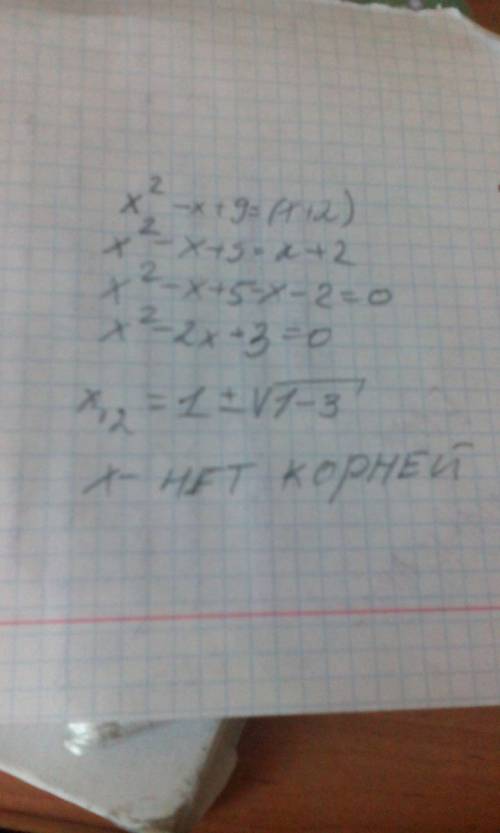 x² - x + 9 = (x + 2)
x² - x + 5 = x + 2
x² - x + 5 - x - 2 = 0
x² - 2x + 3 = 0
x₁,₂ = 1 ± √1-3
x - НЕТ КОРНЕЙ